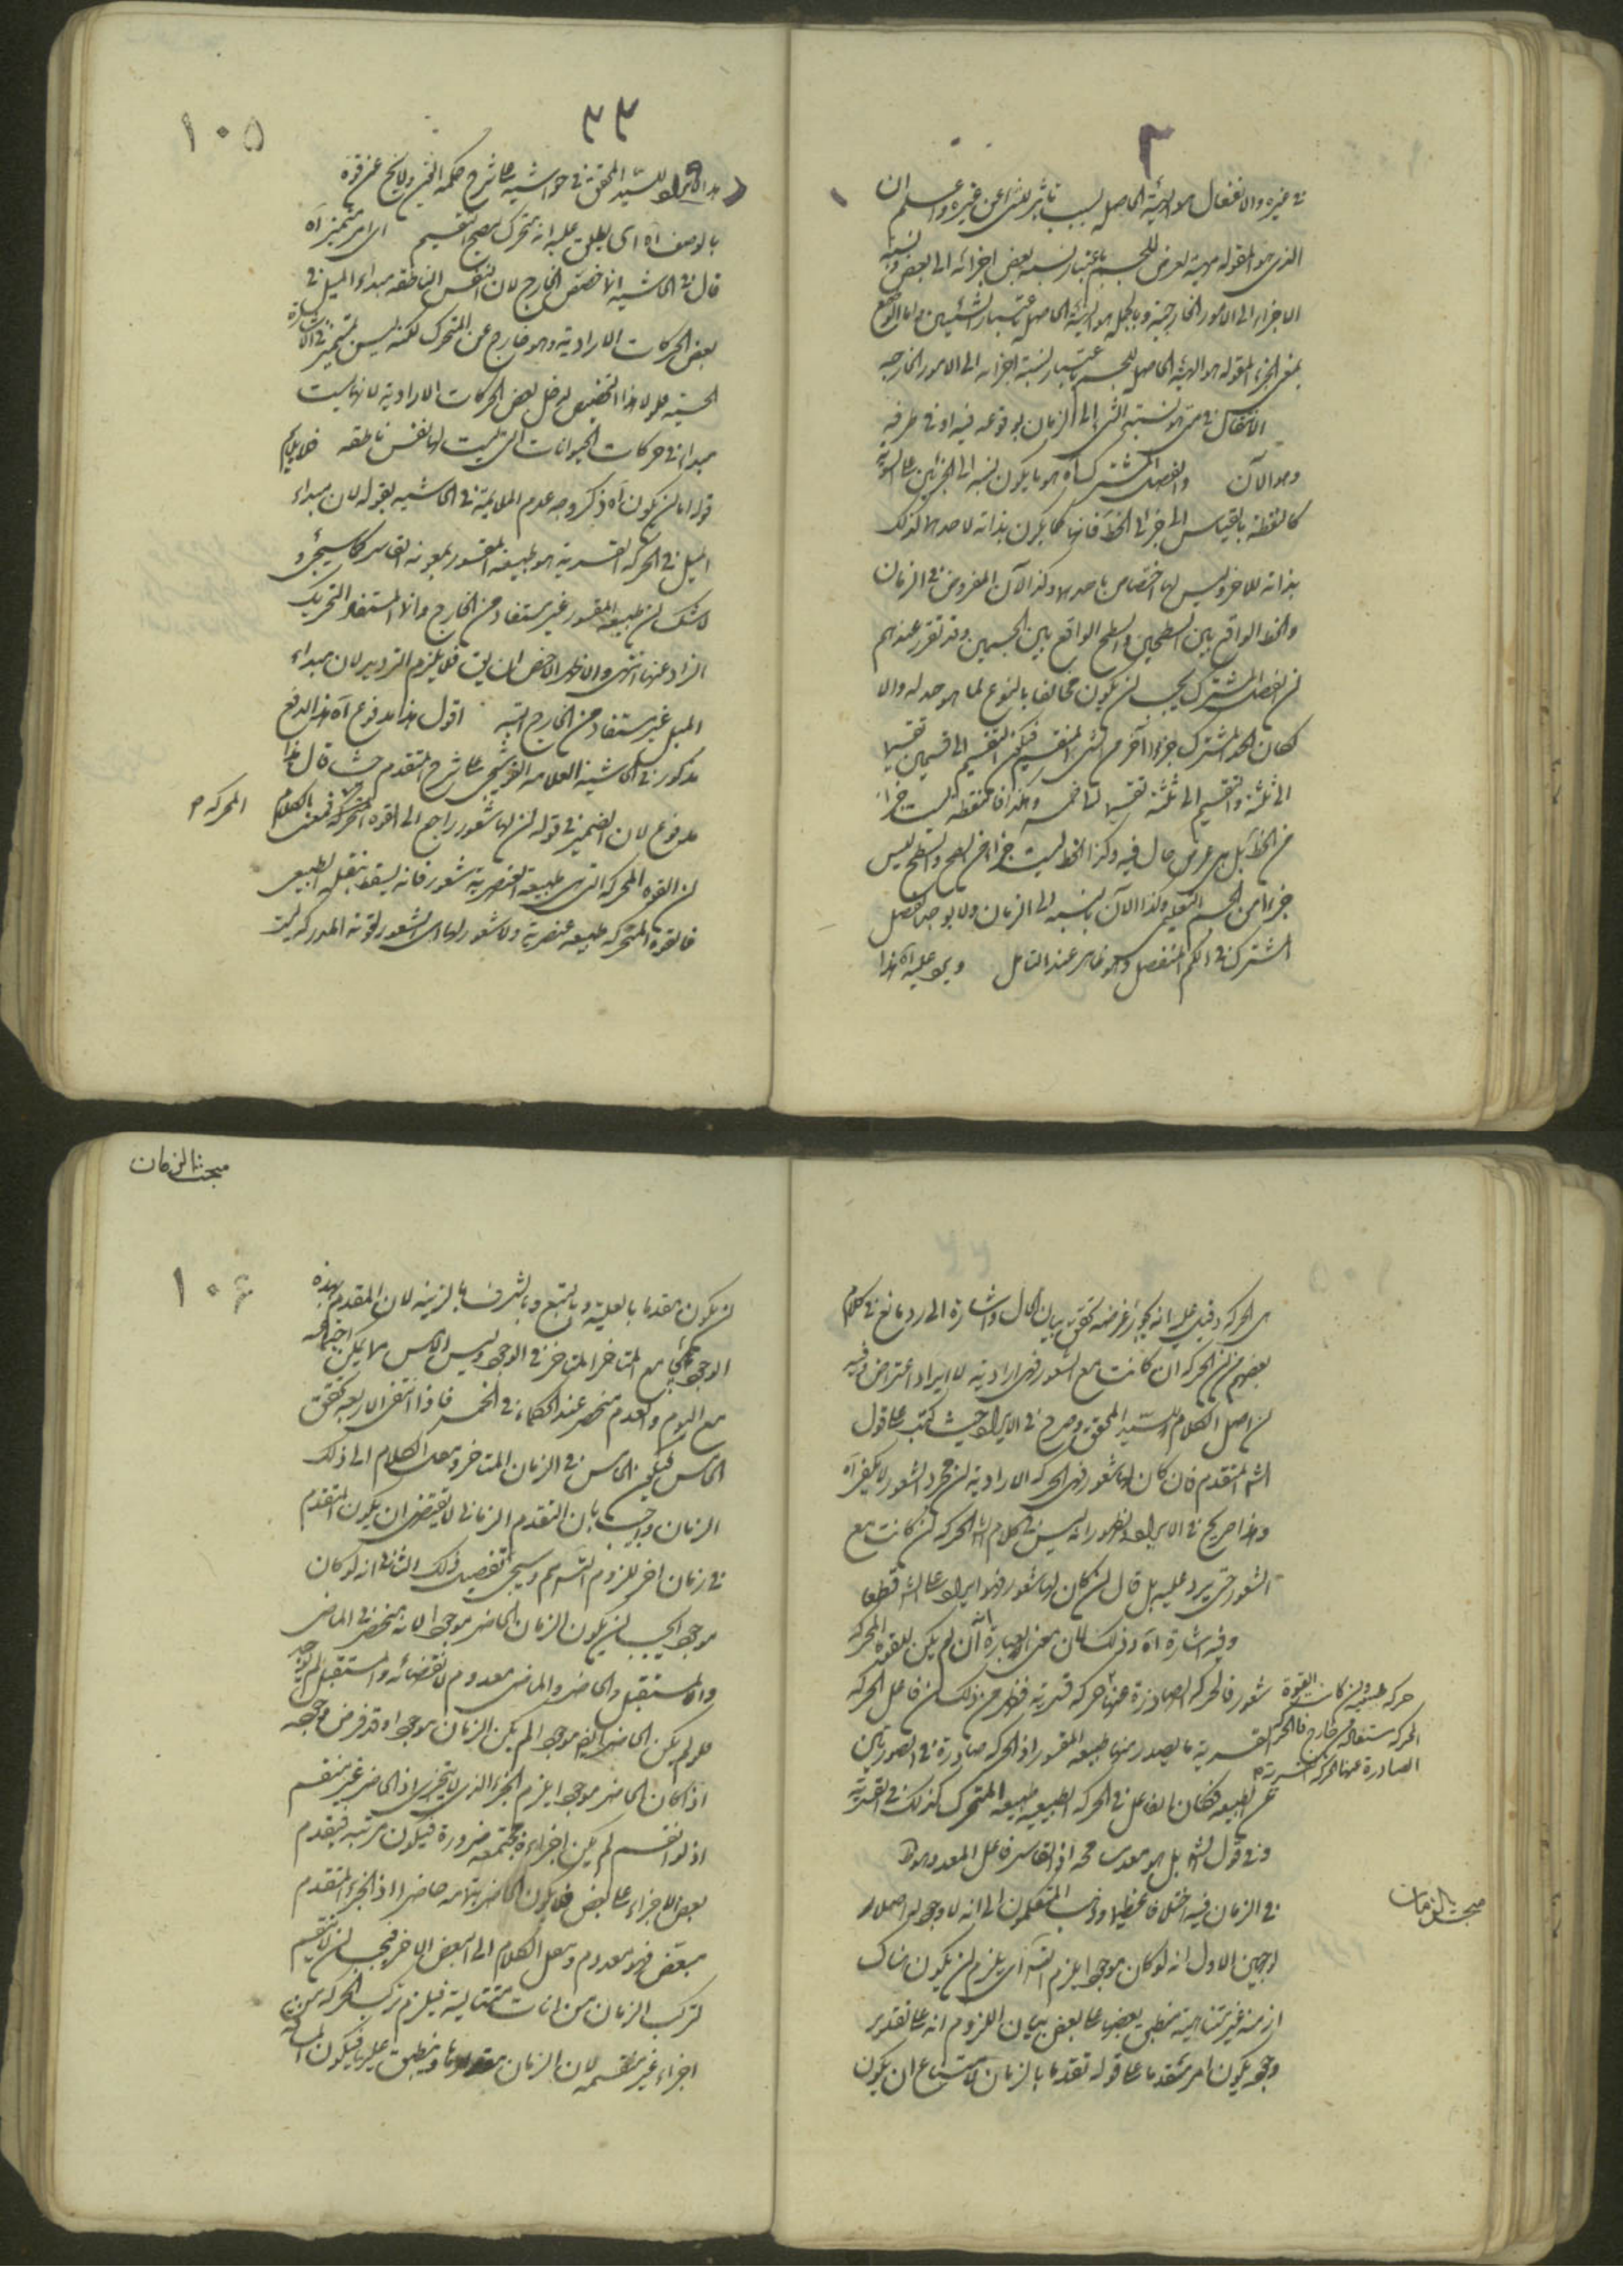 ٢
في غيره والانفعال هو الهيئة الحاصلة بسبب تأثير الشيء عن غيره واعلم ان
الذي هو المقولة هيئة تعرض للجسم باعتبار نسبة بعض اجزائه الى البعض ونسبة
الاجزاء الى الامور الخارجية وبالجملة هو الهيئة الحاصلة باعتبار النسبتين واما الوضع
بمعنى جزء المقولة هو الهيئة الحاصلة للجسم باعتبار نسبة اجزائه الى الامور الخارجية
الانتقال في متى هو نسبة الشي الى الزمان بوقوعه فيه او في طرفه
وهو الآن والفصل المشترك آه هو ما يكون نسبته الى الجزئين على السوية
كالنقطة بالقياس الى جزئي الخط فانها كما يكون بداية لاحدهما كذلك
بداية للآخر وليس لها اختصاص باحدهما وكذا الآن المفروض في الزمان
والخط الواقع بين السطحين والسطح الواقع بين الجسمين وقد تقرر عندهم
ان الفصل المشترك يجب ان يكون مخالفا بالنوع لما هو حد له والا
لكان الحد المشترك جزءا آخر من الشي المنقسم فيكون التقسيم الى قسمين تقسيما
الى ثلثة والتقسيم الى ثلثة تقسيما الى خمسة وهكذا فالنقطة ليست جزءا
من الخط بل هي عرض حال فيه وكذا الخط ليست جزءا من السطح والسطح ليس
جزءا من الجسم التعليمي وكذا الآن بالنسبة الى الزمان ولا يوجد الفصل
المشترك في الكم المنفصل وهو ظاهر عند التأمل ويرد عليه آه هذا
٣٣
١٠٥
هذا الايراد للسيد المحقق في حواشيه على شرح حكمة العين ولا يخ عن قوة
بالوصف آه اي يطلق عليه انه متحرك يصح التقسيم اي امر متميز آه
قال في الحاشية انما خصص الخارج لان النفس الناطقة مبداء الميل في
بعض الحركات الارادية وهو خارج عن المتحرك لكنه ليس بمتميز في الاشارة
الحسية فلولا هذا التخصيص لدخل بعض الحركات الارادية لانها ليست
مبدا في حركات الحيوانات التي ليست لها نفس ناطقة فلا يلايم
قوله اما ان يكون آه ذكر وجه عدم الملايمة في الحاشية بقوله لان مبداء
الميل في الحركة القسرية هو طبيعة المقسور بمعونة القاسر كما سيجئ و
لا شك ان طبيعة المقسور غير مستفاد من الخارج وانما المستفاد التحريك
الزائد عنها انتهى والاظهر الاخصر ان يق فلا يلزم الترديد لان مبداء
الميل غير مستفاد من الخارج البتة اقول هذا مدفوع آه هذا الدفع
مذكور في الحاشية العلامة القوشجي على شرح المتقدم حيث قال هذا
مدفوع لان الضمير في قوله ان لها شعور راجع الى القوة المحركة فمعنى الكلام
المحركة م
ان القوة المحركة التي هي طبيعة العنصرية شعور فانه يسقط بثقله الطبيعي
فالقوة المتحركة طبيعة عنصرية ولا شعور لها اي الشعور لقوته المدركة ليست
هي الحركة وقيل عليه انه يجوز غرضه تحقق بيان الحال واشارة الى رد ما نع في كلام
بعضهم من ان الحركة ان كانت مع الشعور فهي ارادية لا ايراد اعتراض وفيه
ان اصل الكلام للسيد المحقق وصرح في الايراد حيث كتب على قول
الشه المتقدم فان كان لها شعور فهي الحركة الارادية ان مجرد الشعور لا يكفي آه
وهذا صريح في الايراد لظهور انه ليس في كلام الشه الحركة ان كانت مع
الشعور حتى يرد عليه بل قال ان كان لها شعور فهو ايراد على الشه قطعا
وفيه اشارة آه وذلك لان معنى العبارة آن لم يكن للقوة المحركة
شعور فالحركة الصادرة عنها حركة قسرية فظهر من ذلك ان فاعل الحركة
حركة طبيعية وان كانت القوة
المحركة مستفادة من خارج فالحركة
الصادرة عنها حركة قسرية م
القسرية ما يصدر منها طبيعة المقسور اذ الحركة صادرة في الصورتين
عن الطبيعة فكان الفاعل في الحركة الطبيعية طبيعة المتحرك كذلك في القسرية
وفي قول الشه بل هو معد مسامحة اذ القاسر فاعل المعد وهو ظ
مبحث الزمان
في الزمان فيه اختلافا عظيما وذهب المتكلمون الى انه لا وجود له اصلا
لوجهين الاول انه لو كان موجودا يلزم التسه آه اي يلزم ان يكون هناك
ازمنة غير متناهية منطبق بعضها على بعض بيان اللزوم انه على تقدير
وجوده يكون امس متقدما على قوله تقدما بالزمان لامتناع ان يكون
مبحث الزمان
١٠٦
ان يكون متقدما بالعلية وبالطبع وبالشرف بالرتبة لان المقدم بهذه
الوجوه يجامع المتاخر في الوجود وليس الامس مما يمكن اجتماعه
مع اليوم والتقدم منحصر عند الحكماء في الخمس فاذا انتفى الاربعة تحقق
الخامس فيكون الامس في الزمان المتاخر وينقل الكلام الى ذلك
الزمان واجيب بان التقدم الزماني لا يقتضي ان يكون المتقدم
في زمان اخر للزوم التسه ثم وسيجئ تفصيل ذلك الثاني انه لو كان
موجودا يجب ان يكون الزمان الحاضر موجودا لانه منحصر في الماضي
والمستقبل والحاضر والماضي معدوم لانقضائه والمستقبل لم يوجد
فلو لم يكن الحاضر ايضا موجودا لم يكن الزمان موجودا وقد فرض وجوده
اذ لو كان الحاضر موجودا يلزم الجزء الذي لا يتجزى اذ الحاضر غير منقسم
اذ لو انقسم لم يكن اجزاءه مجتمعة ضرورة فيكون مرتبة فيتقدم
بعض الاجزاء على بعض فلا يكون الحاضر بتمامه حاضرا اذ الجزء المتقدم
معدوم وينقل الكلام الى البعض الاخر فيجب ان لا ينقسم
تركب الزمان من آنات متتالية فيلزم تركب الحركة من
اجزاء غير منقسمة لان الزمان مقدارها ومنطبق عليها فيكون المسافة